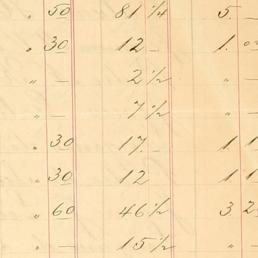 " 50 81 1/4 5.
" 30 12 - 1. 0
" - 2 1/2 " -
" - 7 1/2 " -
" 30 17. - 1 1
" 30 12 1 1
" 60 46 1/2 3 2
" - 15 1/2 " -